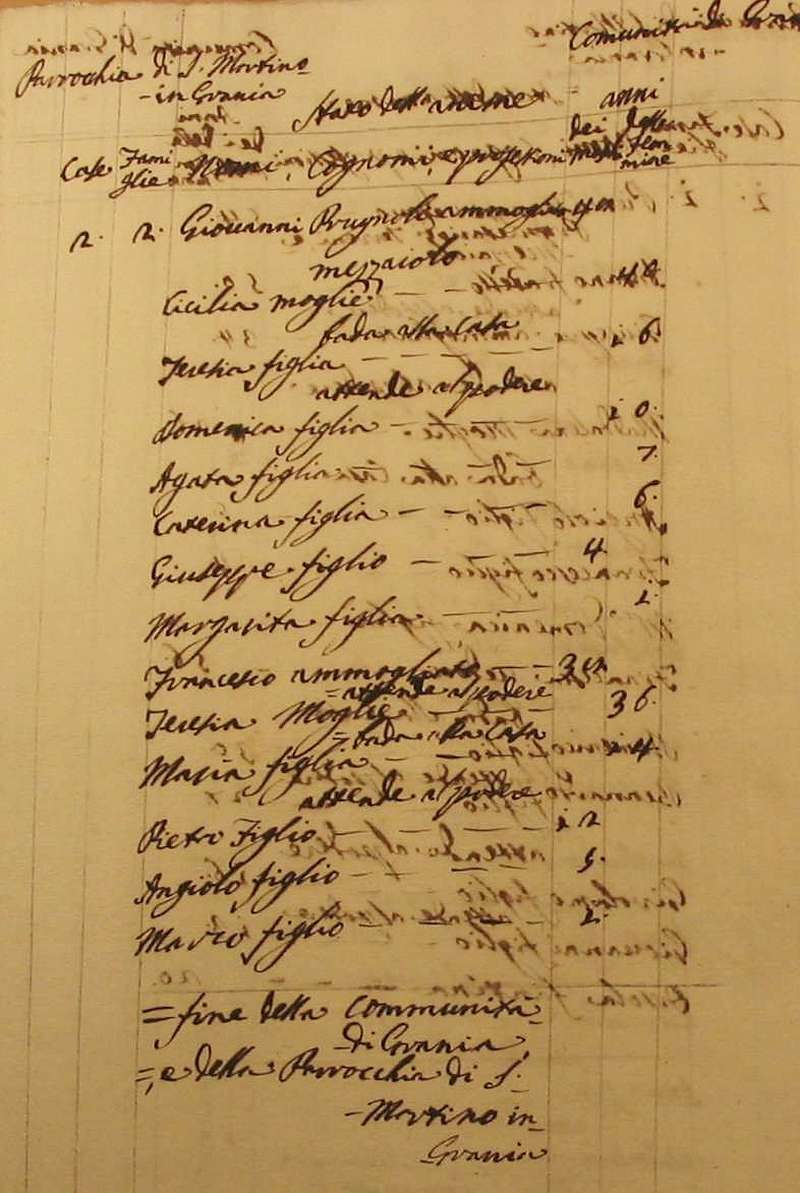 Parrocchia di S. Martino
in Grania
Comunità di
Stato delle anime
anni
dei delle
Case Fami
glie Nomi, Cognomi, e professioni Masc. Fem
mine
2. 2. Giovanni Brugnoli ammogliato 40
mezzaiolo
Cicilia moglie
bada alla Casa
Teresia figlia 16
attende al podere
Domenica figlia 10
Agata figlia 7.
Caterina figlia 6.
Giuseppe figlio 4
Margarita figlia 1.
Francesco ammogliato
= attende al podere
Teresia Moglie 36
= bada alla Casa
Maria figlia 14
attende al podere
Pietro Figlio 12
Angiolo figlio 5.
Marco figlio 2.
= fine della Communità
di Grania,
=, e della Parrocchia di S.
Martino in
Grania